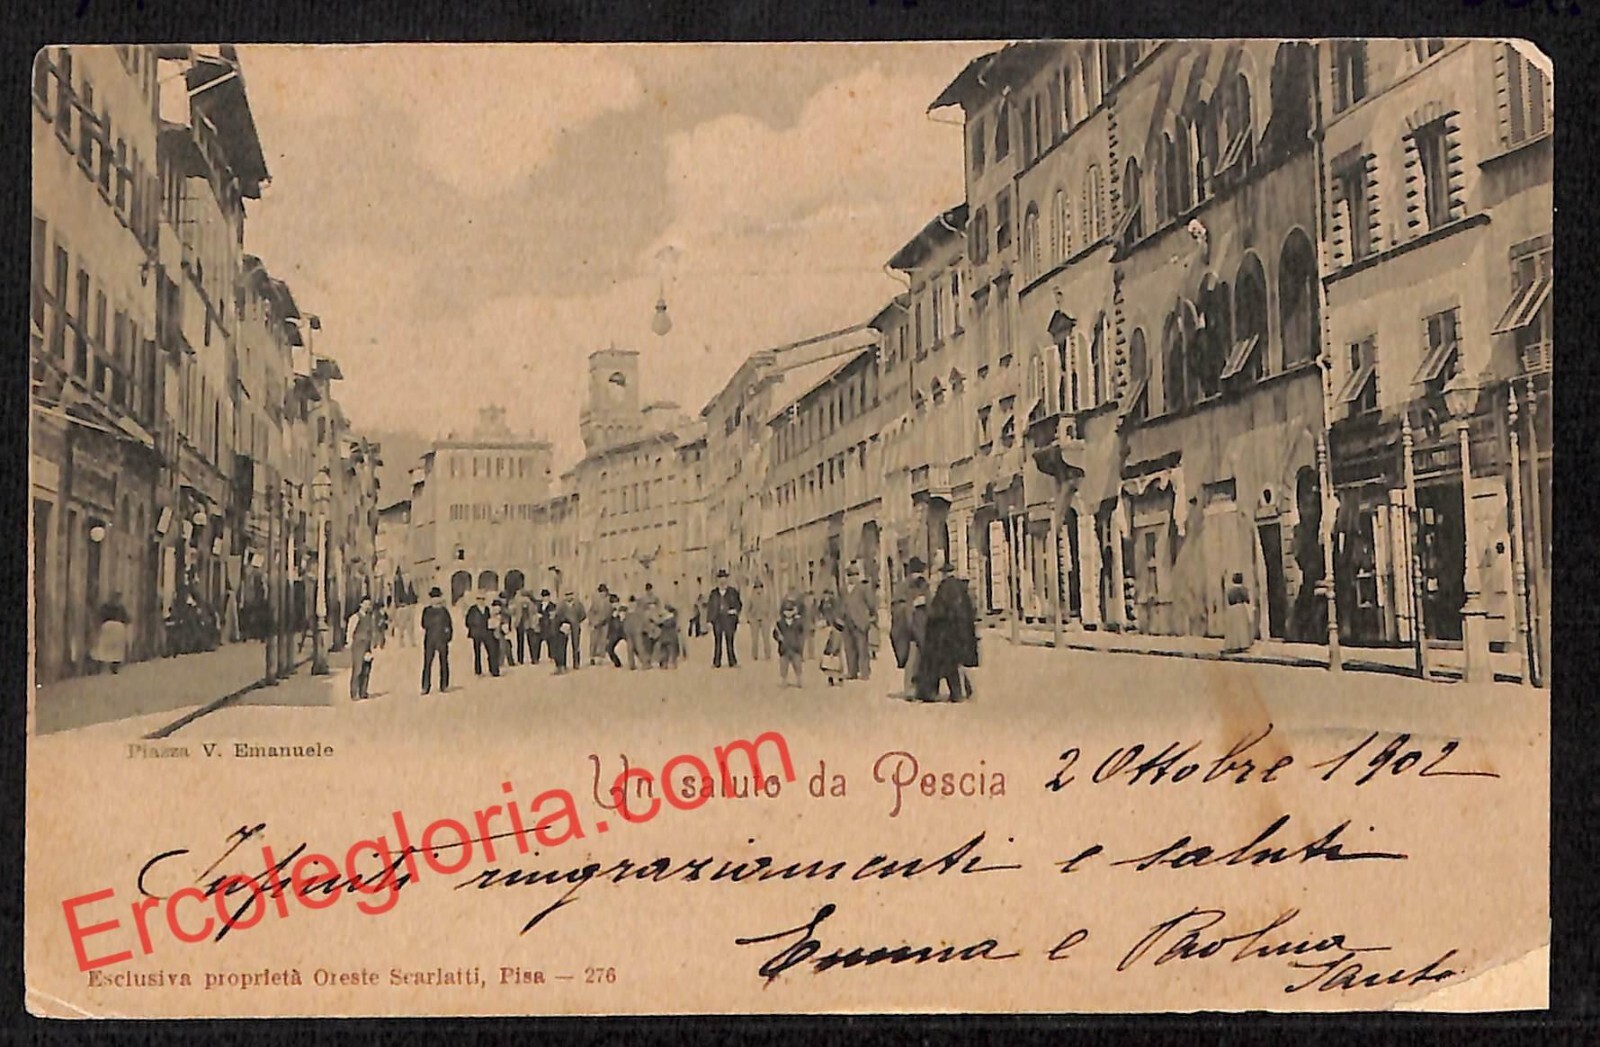 Piazza V. Emanuele
Un saluto da Pescia
2 Ottobre 1902
Infiniti ringraziamenti e saluti
Emma e Paolina
Esclusiva proprietà Oreste Scarlatti, Pisa — 276
Ercolegloria.com